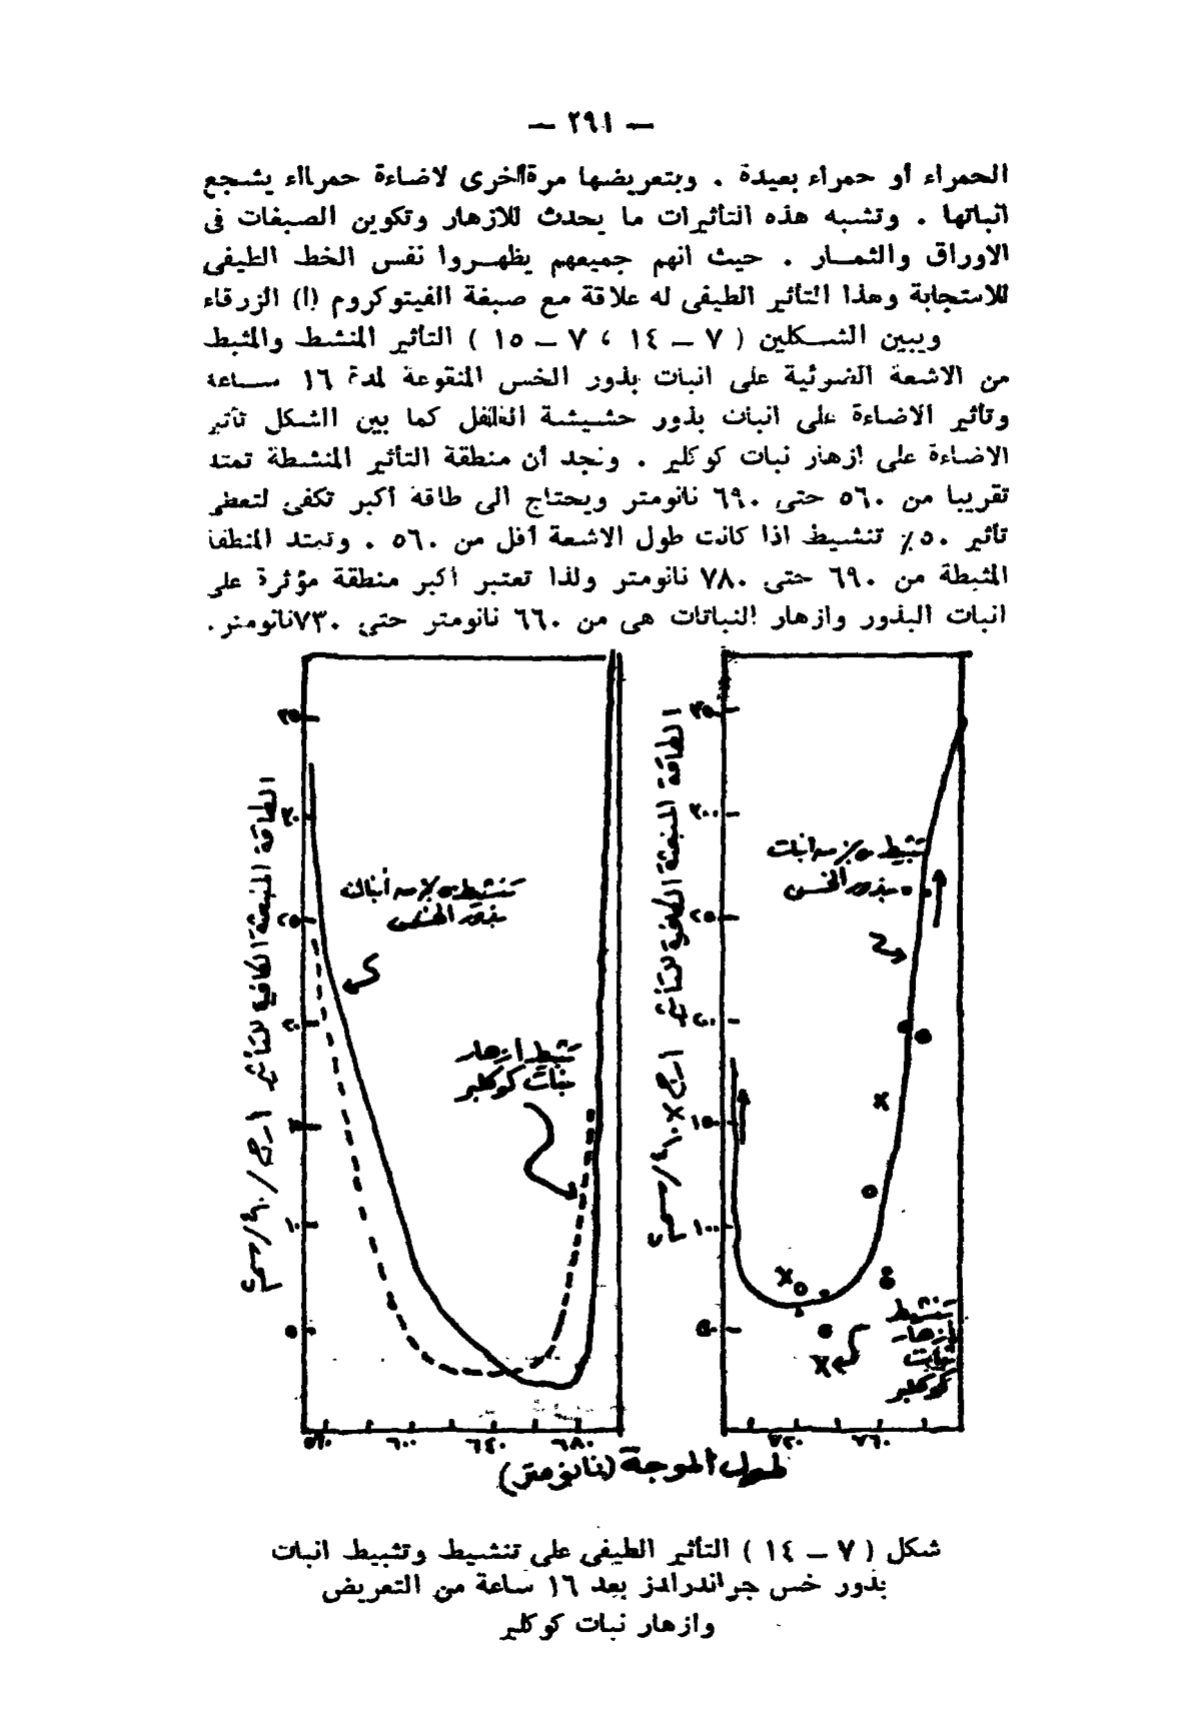 — ٢٩١ —
الحمراء أو حمراء بعيدة . وبتعريضها مرة أخرى لاضاءة حمراء يشجع
انباتها . وتشبه هذه التأثيرات ما يحدث للازهار وتكوين الصبغات فى
الاوراق والثمار . حيث انهم جميعهم يظهروا نفس الخط الطيفى
للاستجابة وهذا التأثير الطيفى له علاقة مع صبغة الفيتوكروم (ا) الزرقاء
ويبين الشكلين ( ٧ – ١٤ ، ٧ – ١٥ ) التأثير المنشط والمثبط
من الاشعة الضوئية على انبات بذور الخس المنقوعة لمدة ١٦ ساعة
وتأثير الاضاءة على انبات بذور حشيشة الفلفل كما بين الشكل تأثير
الاضاءة على ازهار نبات كوكلير . ونجد أن منطقة التأثير المنشطة تمتد
تقريبا من ٥٦٠ حتى ٦٩٠ نانومتر ويحتاج الى طاقة أكبر تكفى لتعطى
تأثير ٥٠٪ تنشيط اذا كانت طول الاشعة أقل من ٥٦٠ . وتمتد المنطقة
المثبطة من ٦٩٠ حتى ٧٨٠ نانومتر ولذا تعتبر أكبر منطقة مؤثرة على
انبات البذور وازهار النباتات هى من ٦٦٠ نانومتر حتى ٧٣٠نانومتر .
الطاقة المنبعثة الكافية للتأثير
٣٥
٣٠
٢٥
٢٠
١٠
٥
بذور الخس
تثبيط ازهار
نبات كوكلير
٥٦٠ ٦٠٠ ٦٤٠ ٦٨٠
الطاقة المنبعثة الكافية للتأثير
٣٥٠
٣٠٠
٢٥٠
٢٠٠
١٥٠
١٠٠
٥٠
تثبيط ٥٠٪ من انبات
بذور الخس
تنشيط
ازهار
نبات
كوكلير
٧٢٠ ٧٦٠
طول الموجة (نانومتر)
شكل ( ٧ – ١٤ ) التأثير الطيفى على تنشيط وتثبيط انبات
بذور خس جراندرابدز بعد ١٦ ساعة من التعريض
وازهار نبات كوكلير